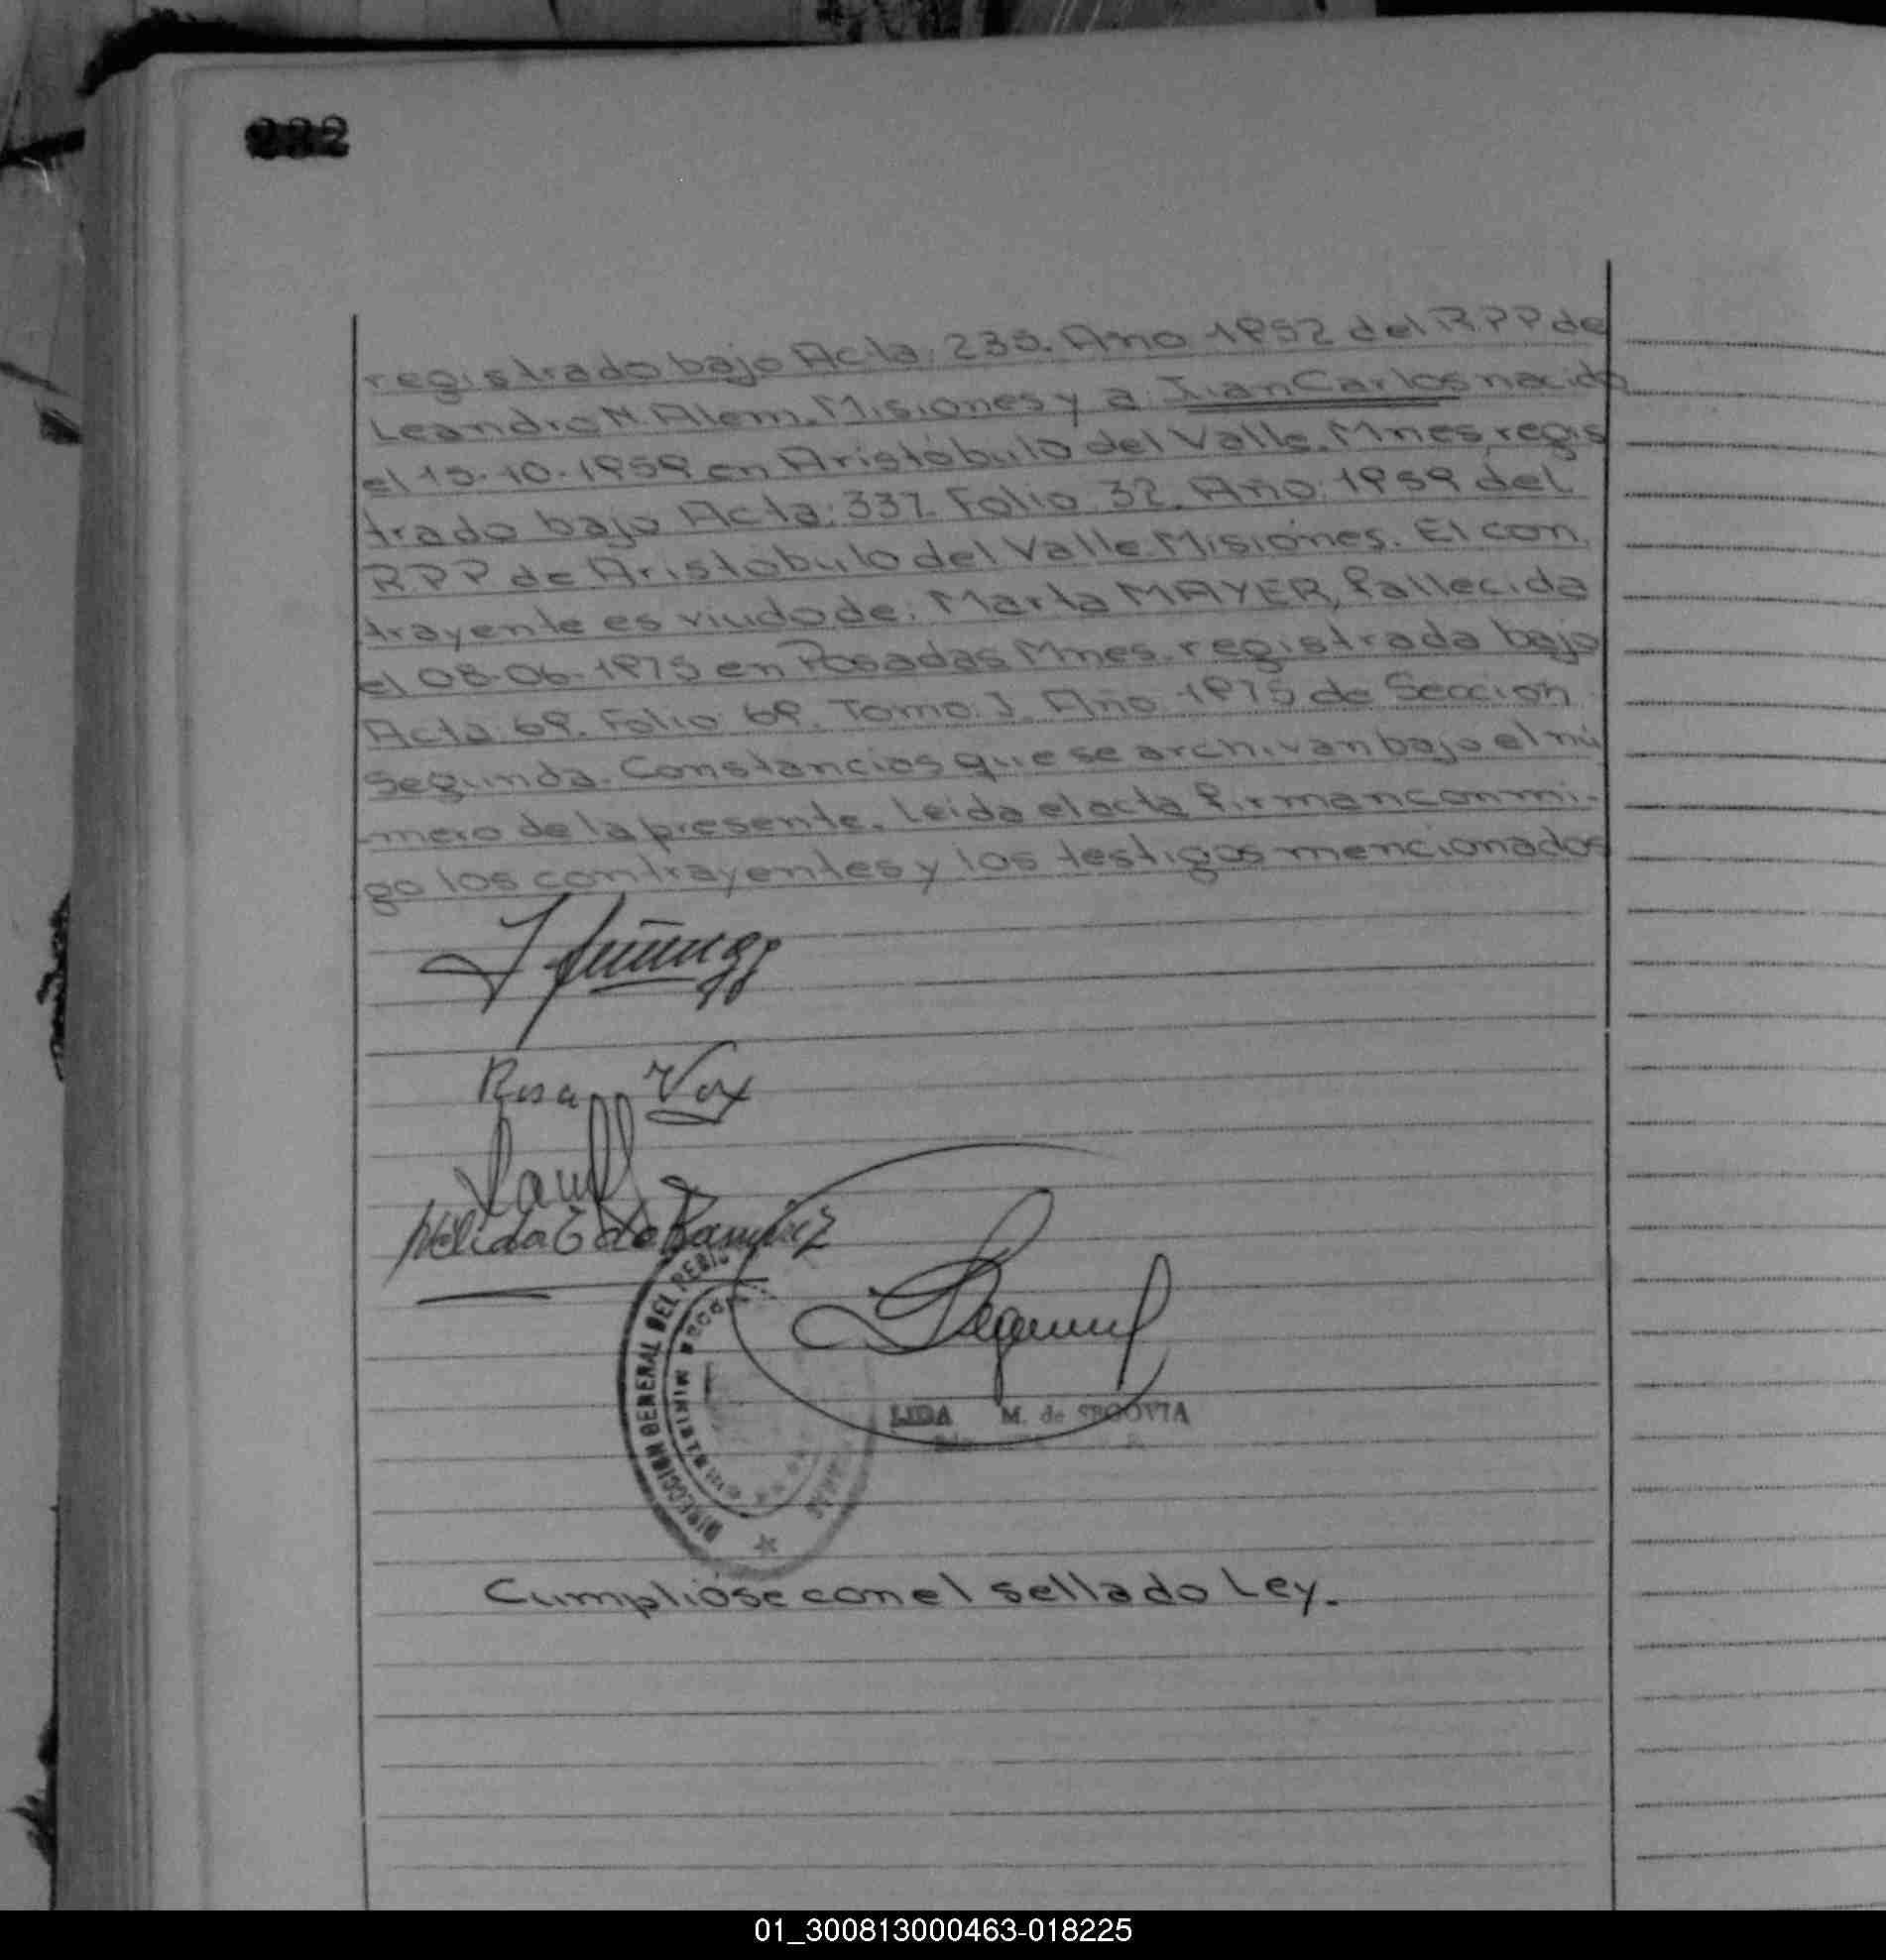 222
registrado bajo Acta: 235. Año 1952 del R.P.P de
Leandro N. Alem. Misiones y a: Juan Carlos nacido
el 15-10-1959 en Aristóbulo del Valle. Mnes, regis
trado bajo Acta: 337. Folio 32. Año: 1959 del
R.P.P de Aristobulo del Valle. Misiones. El con
trayente es viudo de: Marta MAYER, fallecida
el 08-06-1975 en Posadas Mnes. registrada bajo
Acta 69. Folio 69. Tomo I. Año 1975 de Sección
Segunda. Constancias que se archivan bajo el nú
mero de la presente. Leida el acta firman conmi-
go los contrayentes y los testigos mencionados
Rosa Vox
Nélida E de Ramírez
DIRECCION GENERAL DEL
LIDA M. de SEGOVIA
Cumplióse con el sellado Ley.
01_300813000463-018225